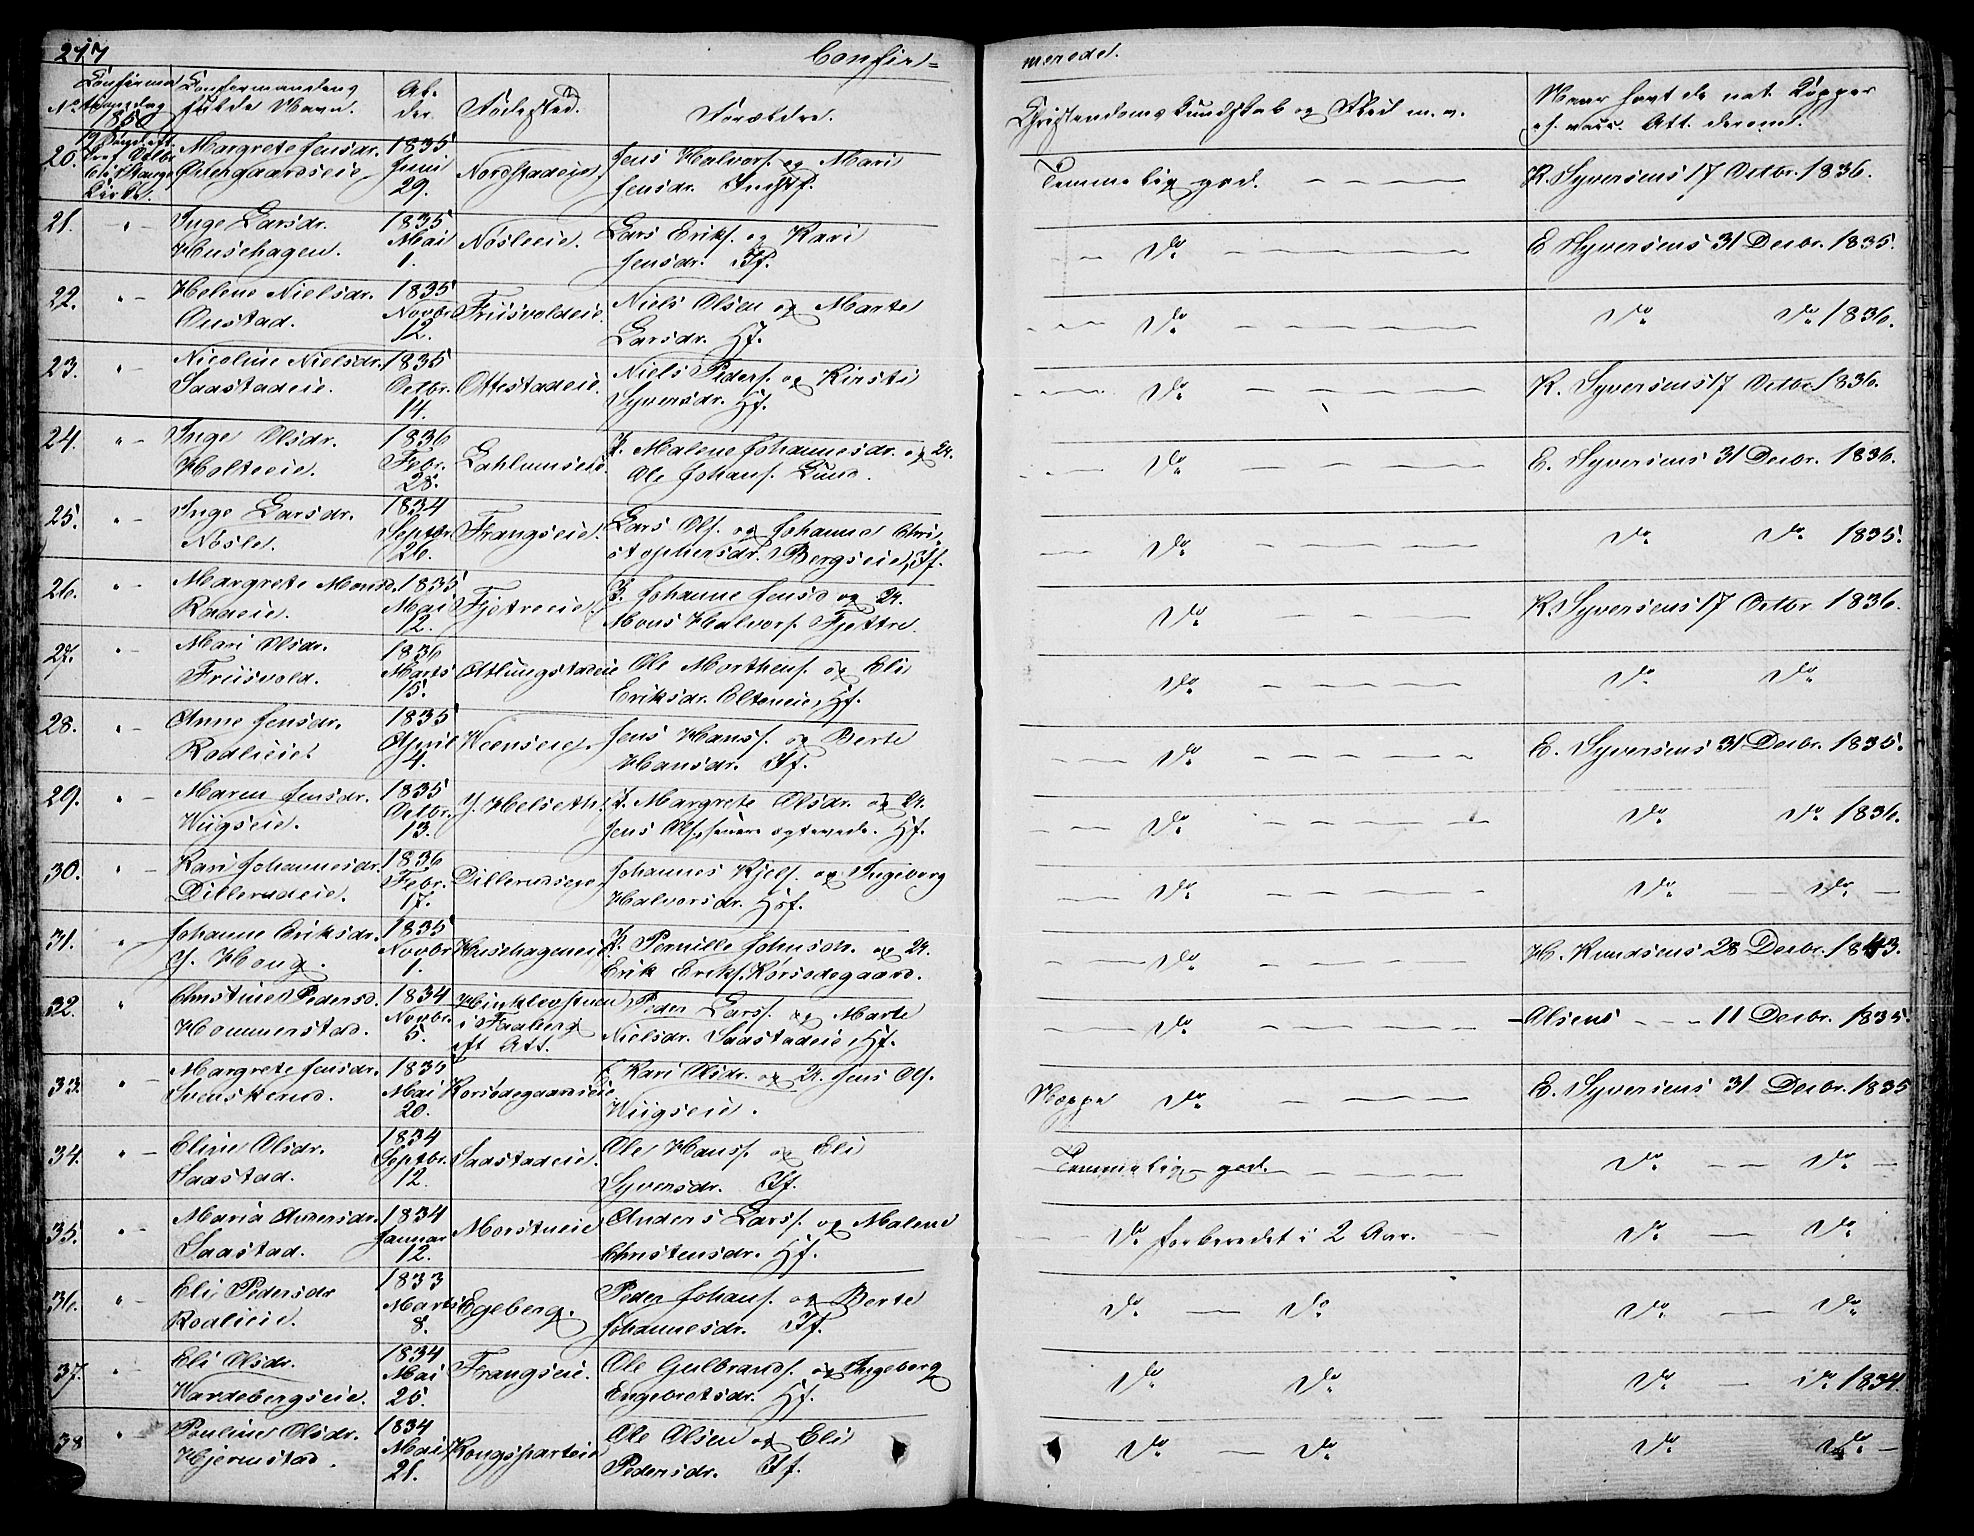 277
Confir=
meredel.
No
Confirma
tionsdag
1850
Confirmandens
fulde Navn.
Al-
der.
Fødested.
Forældre.
Christendoms Kundskab og Flid m. v.
Naar havt de nat. Kopper
el. vacc. Att. derom.
20.
Kirke.
Margrete Jensdr.
1835
Juni
29.
Nordstadeie.
Jens Halvors. og Mari
Jensdr.
Temmelig god.
R. Syversens 17 Octbr. 1836.
21.
Inge Larsdr.
Husehagen.
1835
Mai
1.
Nøsleeie.
Lars Eriks. og Kari
Jensdr. If.
Do
E Syversens 31 Decbr. 1835.
22.
Helene Nielsdr.
Onstad.
1835
Novbr.
12.
Friisvoldeie.
Niels Olsen og Marte
Larsdr. Hf.
Do
Do Do 1836.
23.
Nicoline Nielsdr.
Saastadeie.
1835
Octbr.
14.
Ottestadeie.
Niels Peders. og Kirsti
Syversdr. Hf.
Do
R. Syversens 17 Octbr 1836.
24.
Inge Olsdr.
Holteeie.
1836
Febr.
28.
Lahlumseie.
F. Malene Johannesdr. og U.
Ole Johans. Lund.
Do
E. Syversens 31 Decbr. 1836.
25.
Inge Larsdr.
Nøsle.
1834
Septbr.
26.
Frangseie.
Lars Ols. og Johanne Chri
stophersdr. Bergseie, If.
Do
Do Do 1835.
26.
Margrete Monsd.
Raaeie.
1835
Mai
12.
Fjetreeie.
F. Johanne Jensd og U.
Mons Halvors. Fjettre.
Do
R. Syversens 17 Octbr. 1836.
27.
Mari Olsdr.
Friisvold.
1836
Marts
15.
Atlungstadeie
Ole Morthens. og Eli
Eriksdr. Hf.
Do
Do Do
28.
Anne Jensdr.
Rodlieie.
1835
April
4.
Hoenseie.
Jens Hans. og Berte
Hansdr. If.
Do
E. Syversens 31 Decbr. 1835.
29.
Maren Jensdr.
Wiigseie.
1835
Octbr.
13.
Y. Helseth.
F. Margrete Olsdr. og U.
Jens Ols. senere egtevede. Hf.
Do
Do Do 1836.
30.
Kari Johannesdr.
Dillerudeie.
1836
Febr.
17.
Dillerudseie,
Johannes Kjels. og Ingeborg
Halvorsdr. Hsf.
Do
Do Do
31.
Johanne Eriksdr.
Y. Houg.
1835
Novbr
1.
Husehageneie
F. Pernille Johnsdr. og U.
Erik Eriks. Korsødegaard.
Do
H. Knudsens 28 Decbr. 1843.
32.
Christine Pedersd.
Hommerstad.
1834
Novbr.
5.
i Faaberg
eft Att.
Peder Lars. og Marte
Nielsdr. Saastadeie, Hf.
Do
Olsens 11 Decbr. 1835.
33.
Margrete Jensdr.
Svenskerud.
1835
Mai
20.
Korsødegaardseie
F. Kari Olsdr. og U. Jens Ols.
Wiigseie.
Neppe Do
E. Syversens 31 Decbr. 1835
34.
Eline Olsdr.
Saastad.
1834
Septbr.
12.
Saastadeie.
Ole Hans. og Eli
Syversdr. If.
Temmelig god.
Do Do
35.
Maria Andersdr.
Saastad.
1834
Januar
12.
Morstueie
Anders Lars. og Malene
Christensdr. Hf.
Do forberedet i 2 Aar.
Do Do
36.
Eli Pedersdr
Rodlieie.
1833
Marts
8.
Egeberg.
Peder Johans. og Berte
Johannesdr. If.
Do Do
Do Do
37.
Eli Olsdr.
Vardebergseie.
1834
Mai
25.
Frangseie.
Ole Gulbrands. og Ingeborg
Engebretsdr. Hf.
Do Do
Do Do 1834.
38
Pauline Olsdr.
Hjermstad.
1834
Mai
21.
Kongsparteie
Ole Olsen og Eli
Pedersdr. If.
Do Do
Do Do